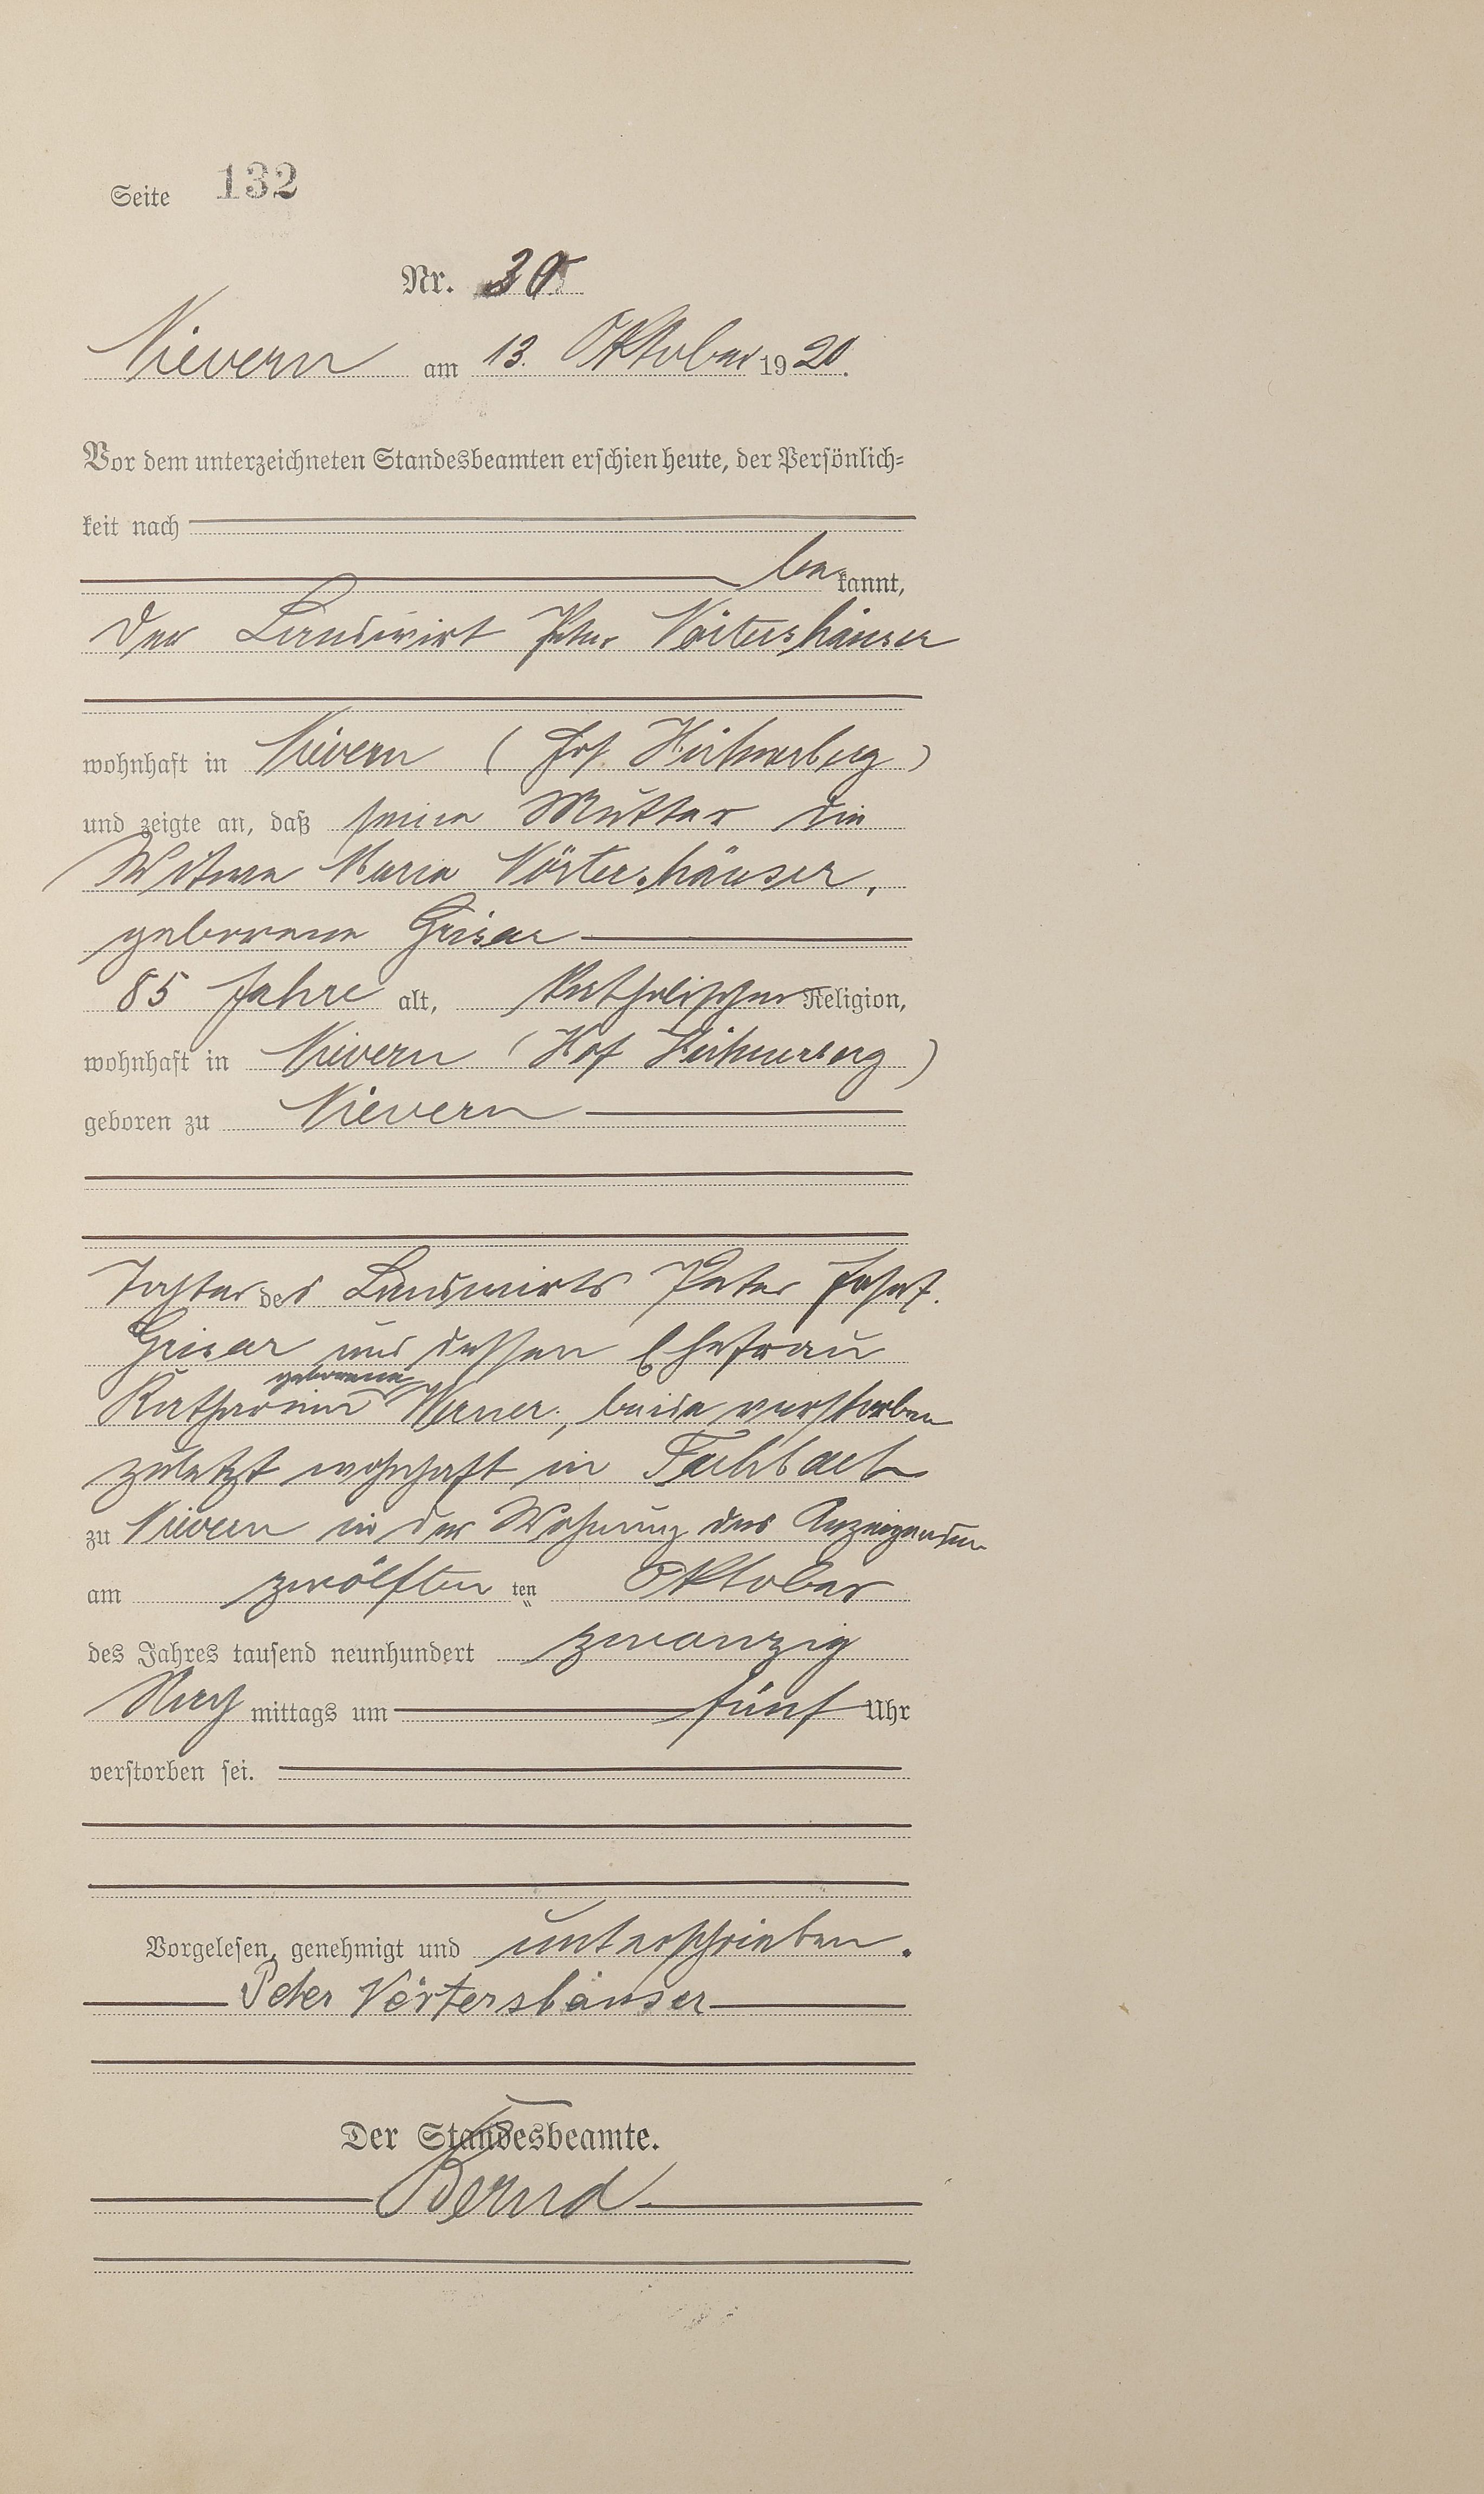 Seite 132
Nr. 30
Nievern am 13. Oktober 1920.
Vor dem unterzeichneten Standesbeamten erschien heute, der Persönlich-
keit nach
bekannt,
der Landwirt Peter Nörtershäuser
wohnhaft in Nievern (Hof )
und zeigte an, daß seine Mutter die
Witwe Maria Nörtershäuser,
geborene Grisar
85 Jahre alt, katholischer Religion,
wohnhaft in Nievern (Hof )
geboren zu Nievern
Tochter des Landwirts Peter
Grisar und dessen Ehefrau
Katharina geborene Werner, beide verstorben
zuletzt wohnhaft in Fachbach
zu Nievern in der Wohnung des Anzeigenden
am zwölften ten Oktober
des Jahres tausend neunhundert zwanzig
Nachmittags um fünf Uhr
verstorben sei.
Vorgelesen, genehmigt und unterschrieben.
Peter Nörtershäuser
Der Standesbeamte.
Bernd